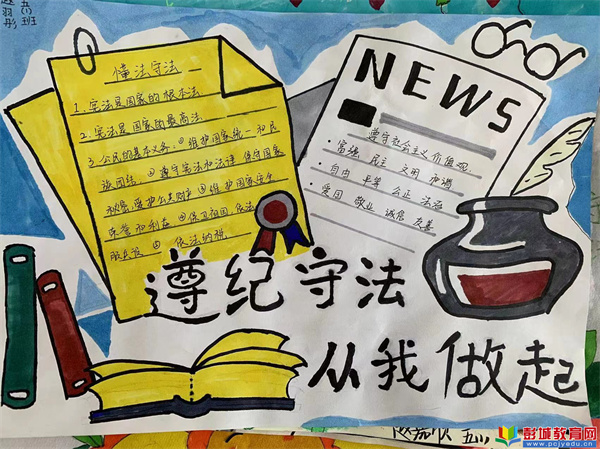 懂法守法
1、宪法是国家的根本法
2、宪法是国家的最高法
3、公民的基本义务①维护国家统一和民
族团结 ②遵守宪法和法律 保守国家
秘密 爱护公共财产 ③维护国家安全
荣誉和利益 ④保卫祖国 依法
服兵役 ⑤ 依法纳税
NEWS
遵守社会主义价值观
· 富强 民主 文明 和谐
· 自由 平等 公正 法治
· 爱国 敬业 诚信 友善
遵纪守法
从我做起
彭城教育网
www.pcjyedu.cn